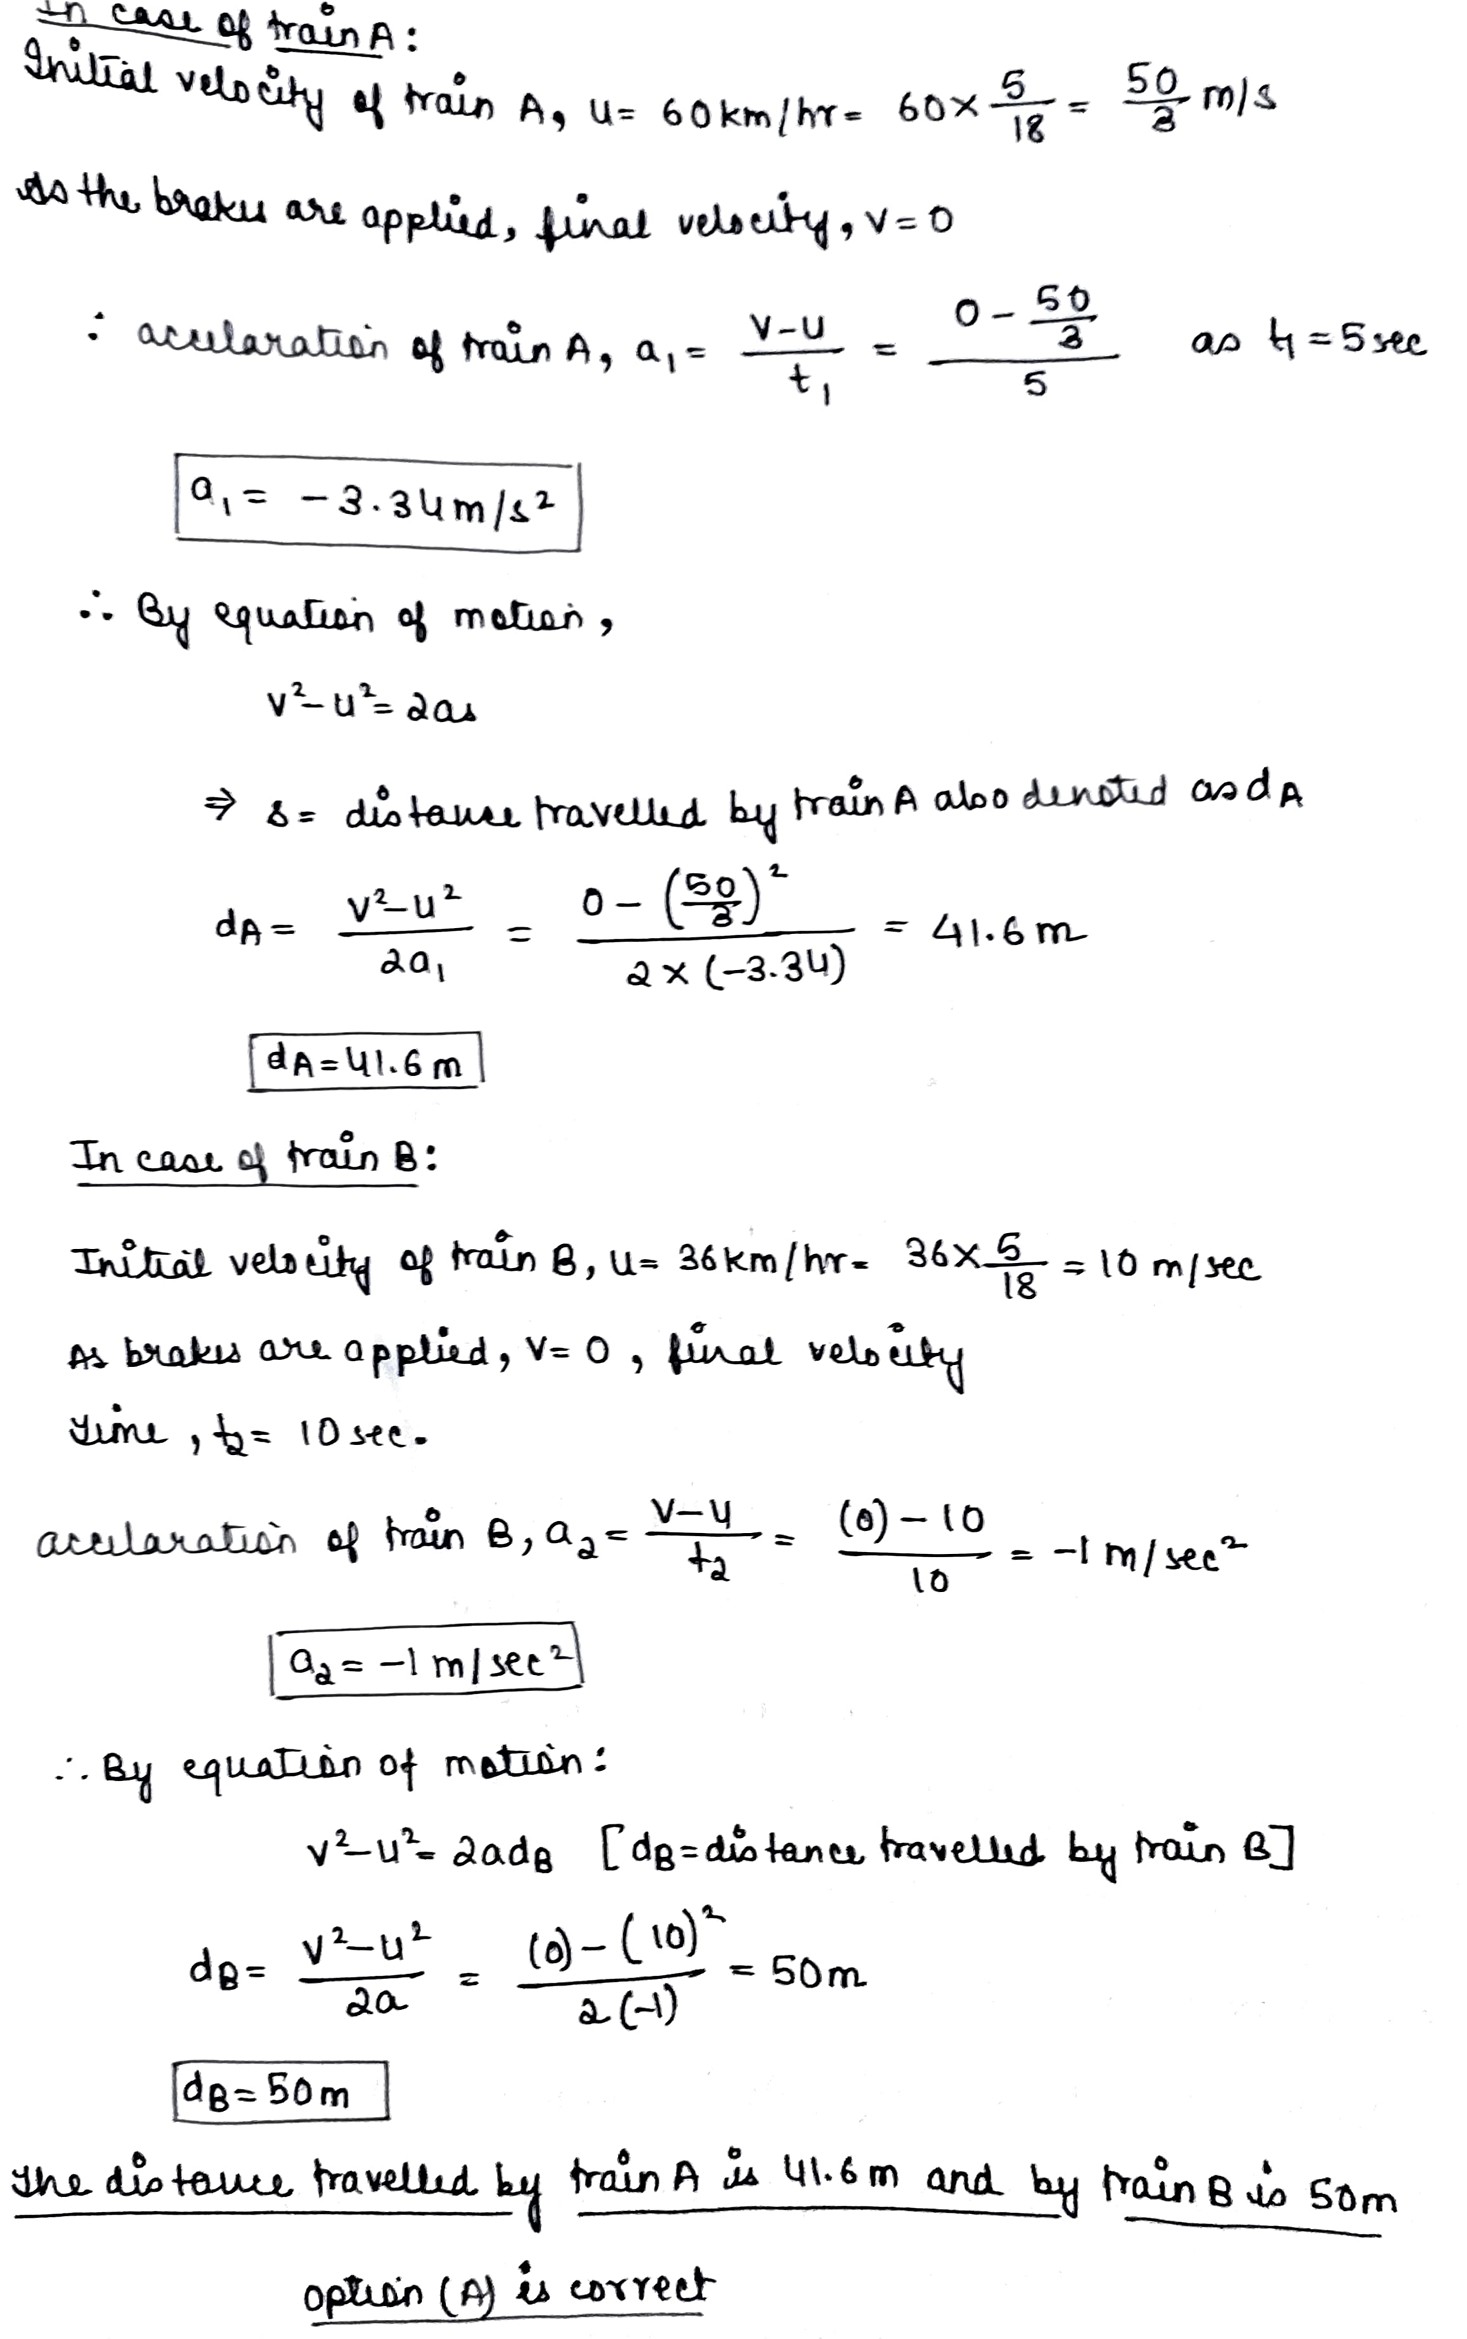 In case of train A:
Initial velocity of train A, u = 60km/hr = 60 × 5/18 = 50/3 m/s
As the brakes are applied, final velocity, v = 0
: accelaration of train A, a₁ = (v-u)/t₁ = (0 - 50/3)/5 as t₁ = 5 sec
a₁ = -3.34 m/s²
∴ By equation of motion,
v² - u² = 2as
⇒ s = distance travelled by train A also denoted as dA
dA = (v² - u²)/2a₁ = (0 - (50/3)²)/(2 × (-3.34)) = 41.6 m
dA = 41.6 m
In case of train B:
Initial velocity of train B, u = 36 km/hr = 36 × 5/18 = 10 m/sec
As brakes are applied, v = 0, final velocity
Time, t₂ = 10 sec.
accelaration of train B, a₂ = (v-u)/t₂ = ((0) - 10)/10 = -1 m/sec²
a₂ = -1 m/sec²
∴ By equation of motion:
v² - u² = 2adB [dB = distance travelled by train B]
dB = (v² - u²)/2a = ((0) - (10)²)/2(-1) = 50m
dB = 50m
The distance travelled by train A is 41.6m and by train B is 50m
option (A) is correct